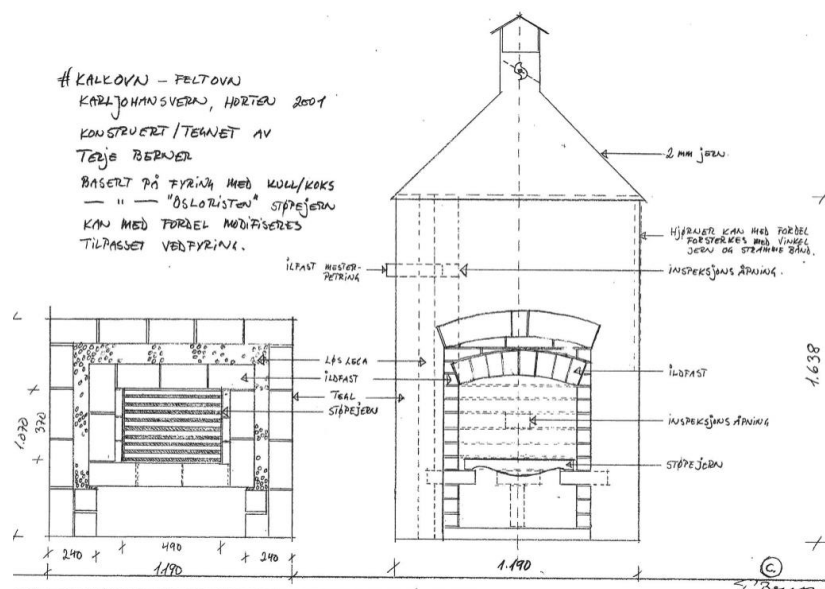 # KALKOVN - FELTOVN
KARLJOHANSVERN, HORTEN 2001
KONSTRUERT/TEGNET AV
TERJE BERNER
BASERT PÅ FYRING MED KULL/KOKS
— " — "OSLORISTEN" STØPEJERN
KAN MED FORDEL MODIFISERES
TILPASSET VEDFYRING.
2 MM JERN.
HJØRNER KAN MED FORDEL
FORSTERKES MED VINKEL
JERN OG STRAMME BÅND.
ILFAST MESTER-
PETRING
INSPEKSJONS ÅPNING.
LØS LECA
ILDFAST
TEGL
STØPEJERN
ILDFAST
INSPEKSJONS ÅPNING
STØPEJERN
1.638
1.070
370
240
490
240
1.190
1.190
C